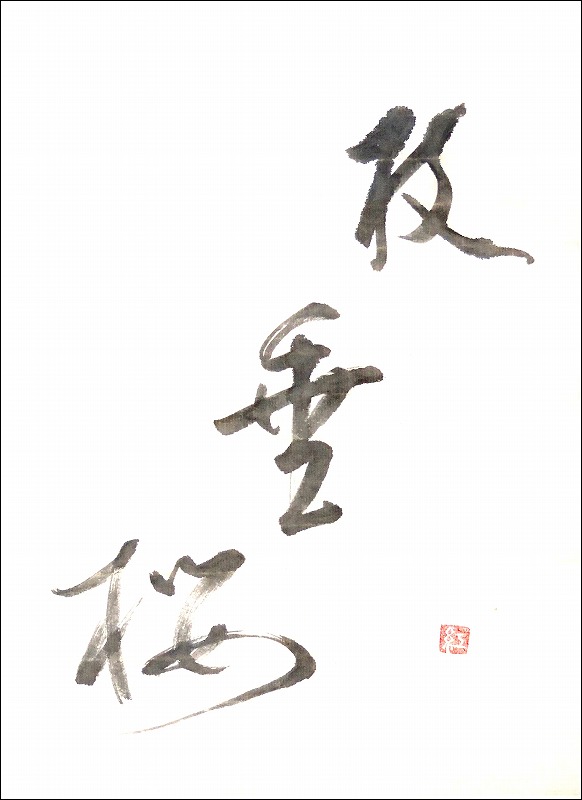 枝
垂
桜